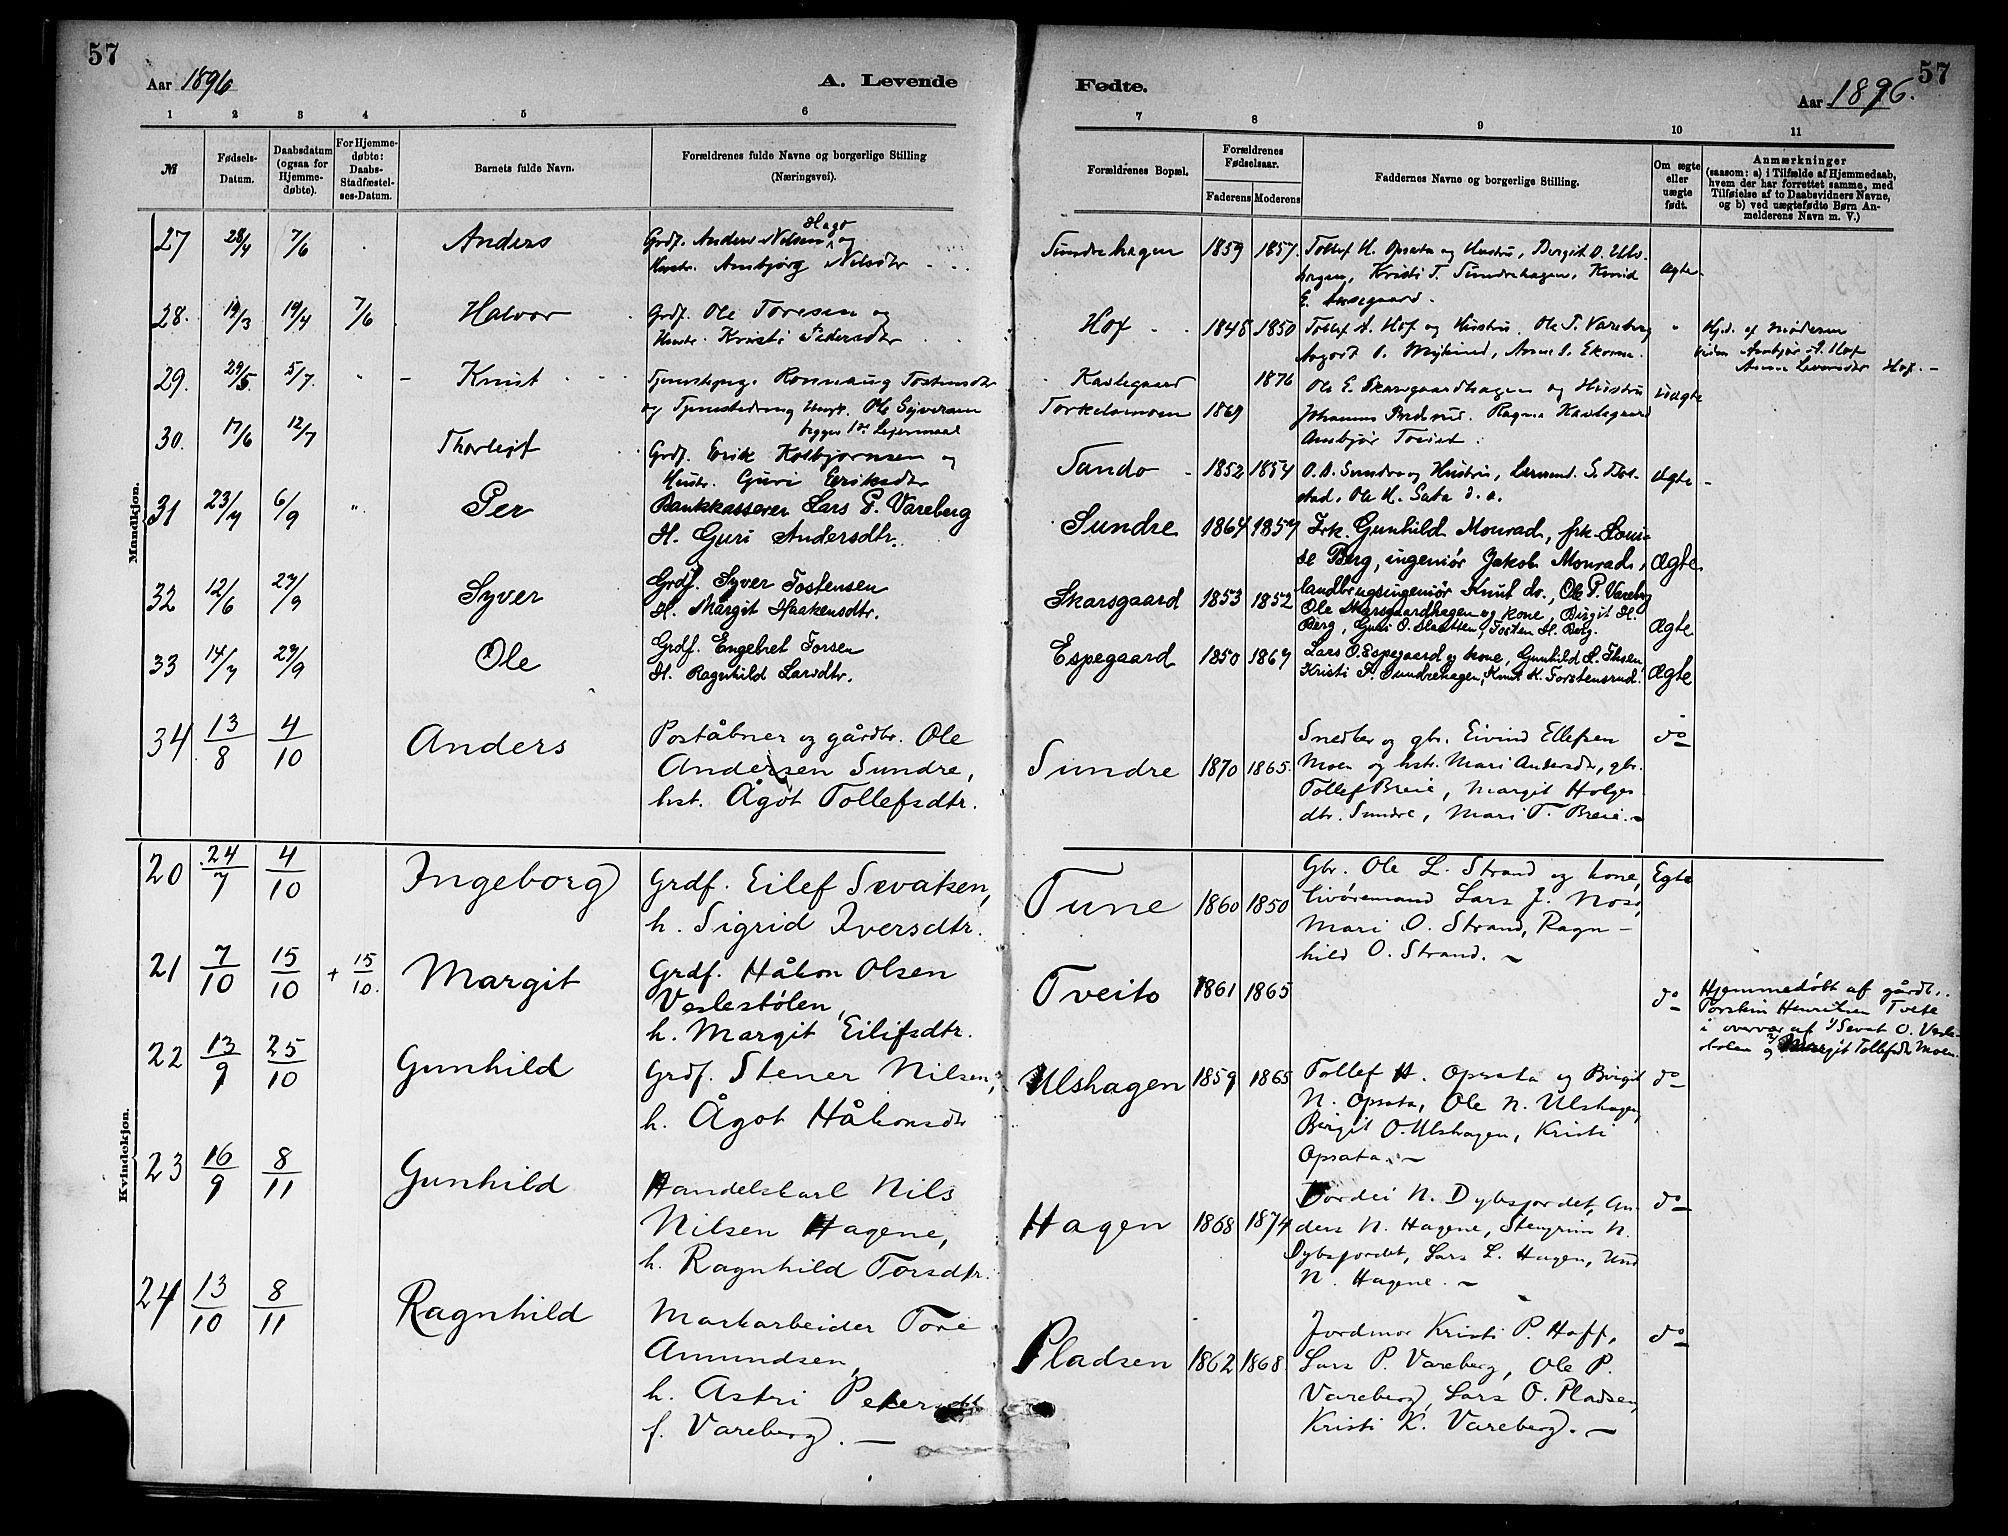 57
Aar 1896
A. Levende
1 2 3 4 5 6
№
Fødsels-Datum.
Daabsdatum (ogsaa for Hjemmedøbte).
For Hjemmedøbte: Daabs-Stadfæstelses-Datum.
Barnets fulde Navn.
Forældrenes fulde Navne og borgerlige Stilling
(Næringsvei).
Mandkjøn.
27 28/4 7/6 Anders Grdf. Anders Nilsen Hago og
Hustr. Ambjørg Nilsdtr
28. 19/3 19/4 7/6 Halvor Grdf. Ole Toresen og
Hustr. Kristi Pedersdtr
29. 29/5 5/7. " Knut Tjenestepige Rønnaug Tostensdtr
og Tjenestedreng Ungk. Ole Syversen
begges 1ste Leiermaal
30. 17/6 12/7 Thorleif Grdf. Erik Kolbjørnsen og
Hustr. Guri Eriksdtr
31 23/7 6/9 " Per Bankkasserer Lars P. Vareberg
H. Guri Andersdtr.
32 12/6 27/9 Syver Grdf. Syver Tostensen
H. Margit Haakensdtr.
33 14/7 27/9 Ole Grdf. Engebret Torsen
H. Ragnhild Larsdtr.
34 13/8 4/10 Anders Poståbner og gårdbr. Ole
Andersen Sundre,
hst. Ågot Tollefsdtr.
Kvindekjøn.
20 24/7 4/10 Ingeborg Grdf. Eilef Sevatsen,
h. Sigrid Iversdtr.
21 7/10 15/10 + 15/10. Margit Grdf. Håkon Olsen
Veslestølen,
h. Margit Eilifsdtr.
22 13/9 25/10 Gunhild Grdf. Stener Nilsen,
h. Ågot Håkonsdtr
23 16/9 8/11 Gunhild Handelskarl Nils
Nilsen Hagene,
h. Ragnhild Torsdtr.
24 13/10 8/11 Ragnhild Markarbeider Tore
Amundsen,
h. Astri Petersdtr
f. Vareberg. —
57
Fødte.
Aar 1896.
7 8 9 10 11
Forældrenes Bopæl.
Forældrenes Fødselsaar.
Faderens Moderens
Faddernes Navne og borgerlige Stilling.
Om ægte eller uægte født.
Anmærkninger
(saasom: a) i Tilfælde af Hjemmedaab,
hvem der har forrettet samme, med
Tilføielse af to Daabsvidners Navne,
og b) ved uægtefødte Børn Anmelderens Navn m. V.)
Sundrehagen 1859 1857. Tollef H. Opsata og Hustru, Birgit O. Uls-
hagen, Kristi T. Sundrehagen, Knud
E. ægte
Hof 1848 1850 Tollef A. Hof og Hustru, Ole P. Vareberg "
Hjd. af Moderen
Ambjør A. Hof
Hof. —
Kavlegaard 1876 Ole E. Skarsgaardhagen og Hustru uægte
1869 Ragna Kavlegaard
Ambjør
Sando 1852 1854 O. A. Sundre og Hustru, ægte
Ole H. Sata
Sundre 1864 1857 Frk. Gunhild Monrad, frk. Loui-
se Berg, ingeniør Jakob Monrad, Ægte
landbrugsingeniør Knut do., Ole P. Vareberg
Skarsgaard 1853 1852 Ole Skarsgaardhagen og kone, Birgit H.
Berg, Guri O. Slaatten, Tosten H. Berg. Ægte
Espegaard 1850 1867 Lars O. Espegaard og kone, Gunhild L. Ihsen,
Kristi T. Sundrehagen, Knut K. Torstensrud. Ægte
Sundre 1870 1865. Snedker og gbr. Eivind Ellefsen do
Moen og hst. Mari Andersdtr, gbr.
Tollef Breie, Margit Holges
dtr. Sundre, Mari T. Breie. —
Tune 1860 1850 Gbr. Ole L. Strand og kone, Egte
livøremand Lars J. Noss,
Mari O. Strand, Ragn-
hild O. Strand. —
Tveito 1861 1865 do Hjemmedøbt af gårdb.
Torstein Henriksen Tveite
i overvær af 1) Sevat O. Vesle-
stølen og 2) Margit Tollefsdtr Moen.
Ulshagen 1859 1865 Tollef H. Opsata og Birgit do
N. Opsata, Ole N. Ulshagen,
Birgit O. Ulshagen, Kristi
Opsata. —
Hagen 1868 1874 Tordei N. Dybsjordet, An- do
ders N. Hagene, Stengrim N.
Dybsjordet, Lars L. Hagen,
N. Hagene. —
Pladsen 1862 1868 Jordmor Kristi P. Hoff, do
Lars P. Vareberg, Ole P.
Vareberg, Lars O. Pladsen,
Kristi K. Vareberg. —